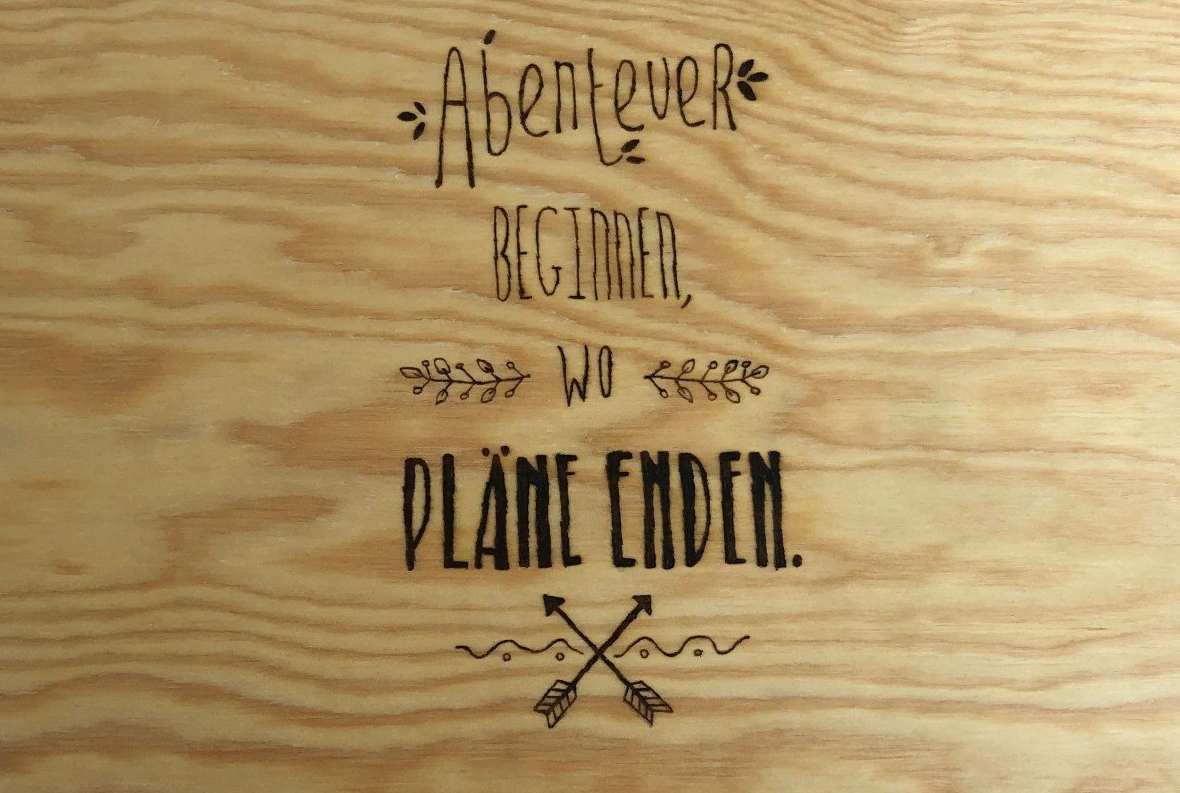 Abenteuer
BEGINNEN,
WO
PLÄNE ENDEN.